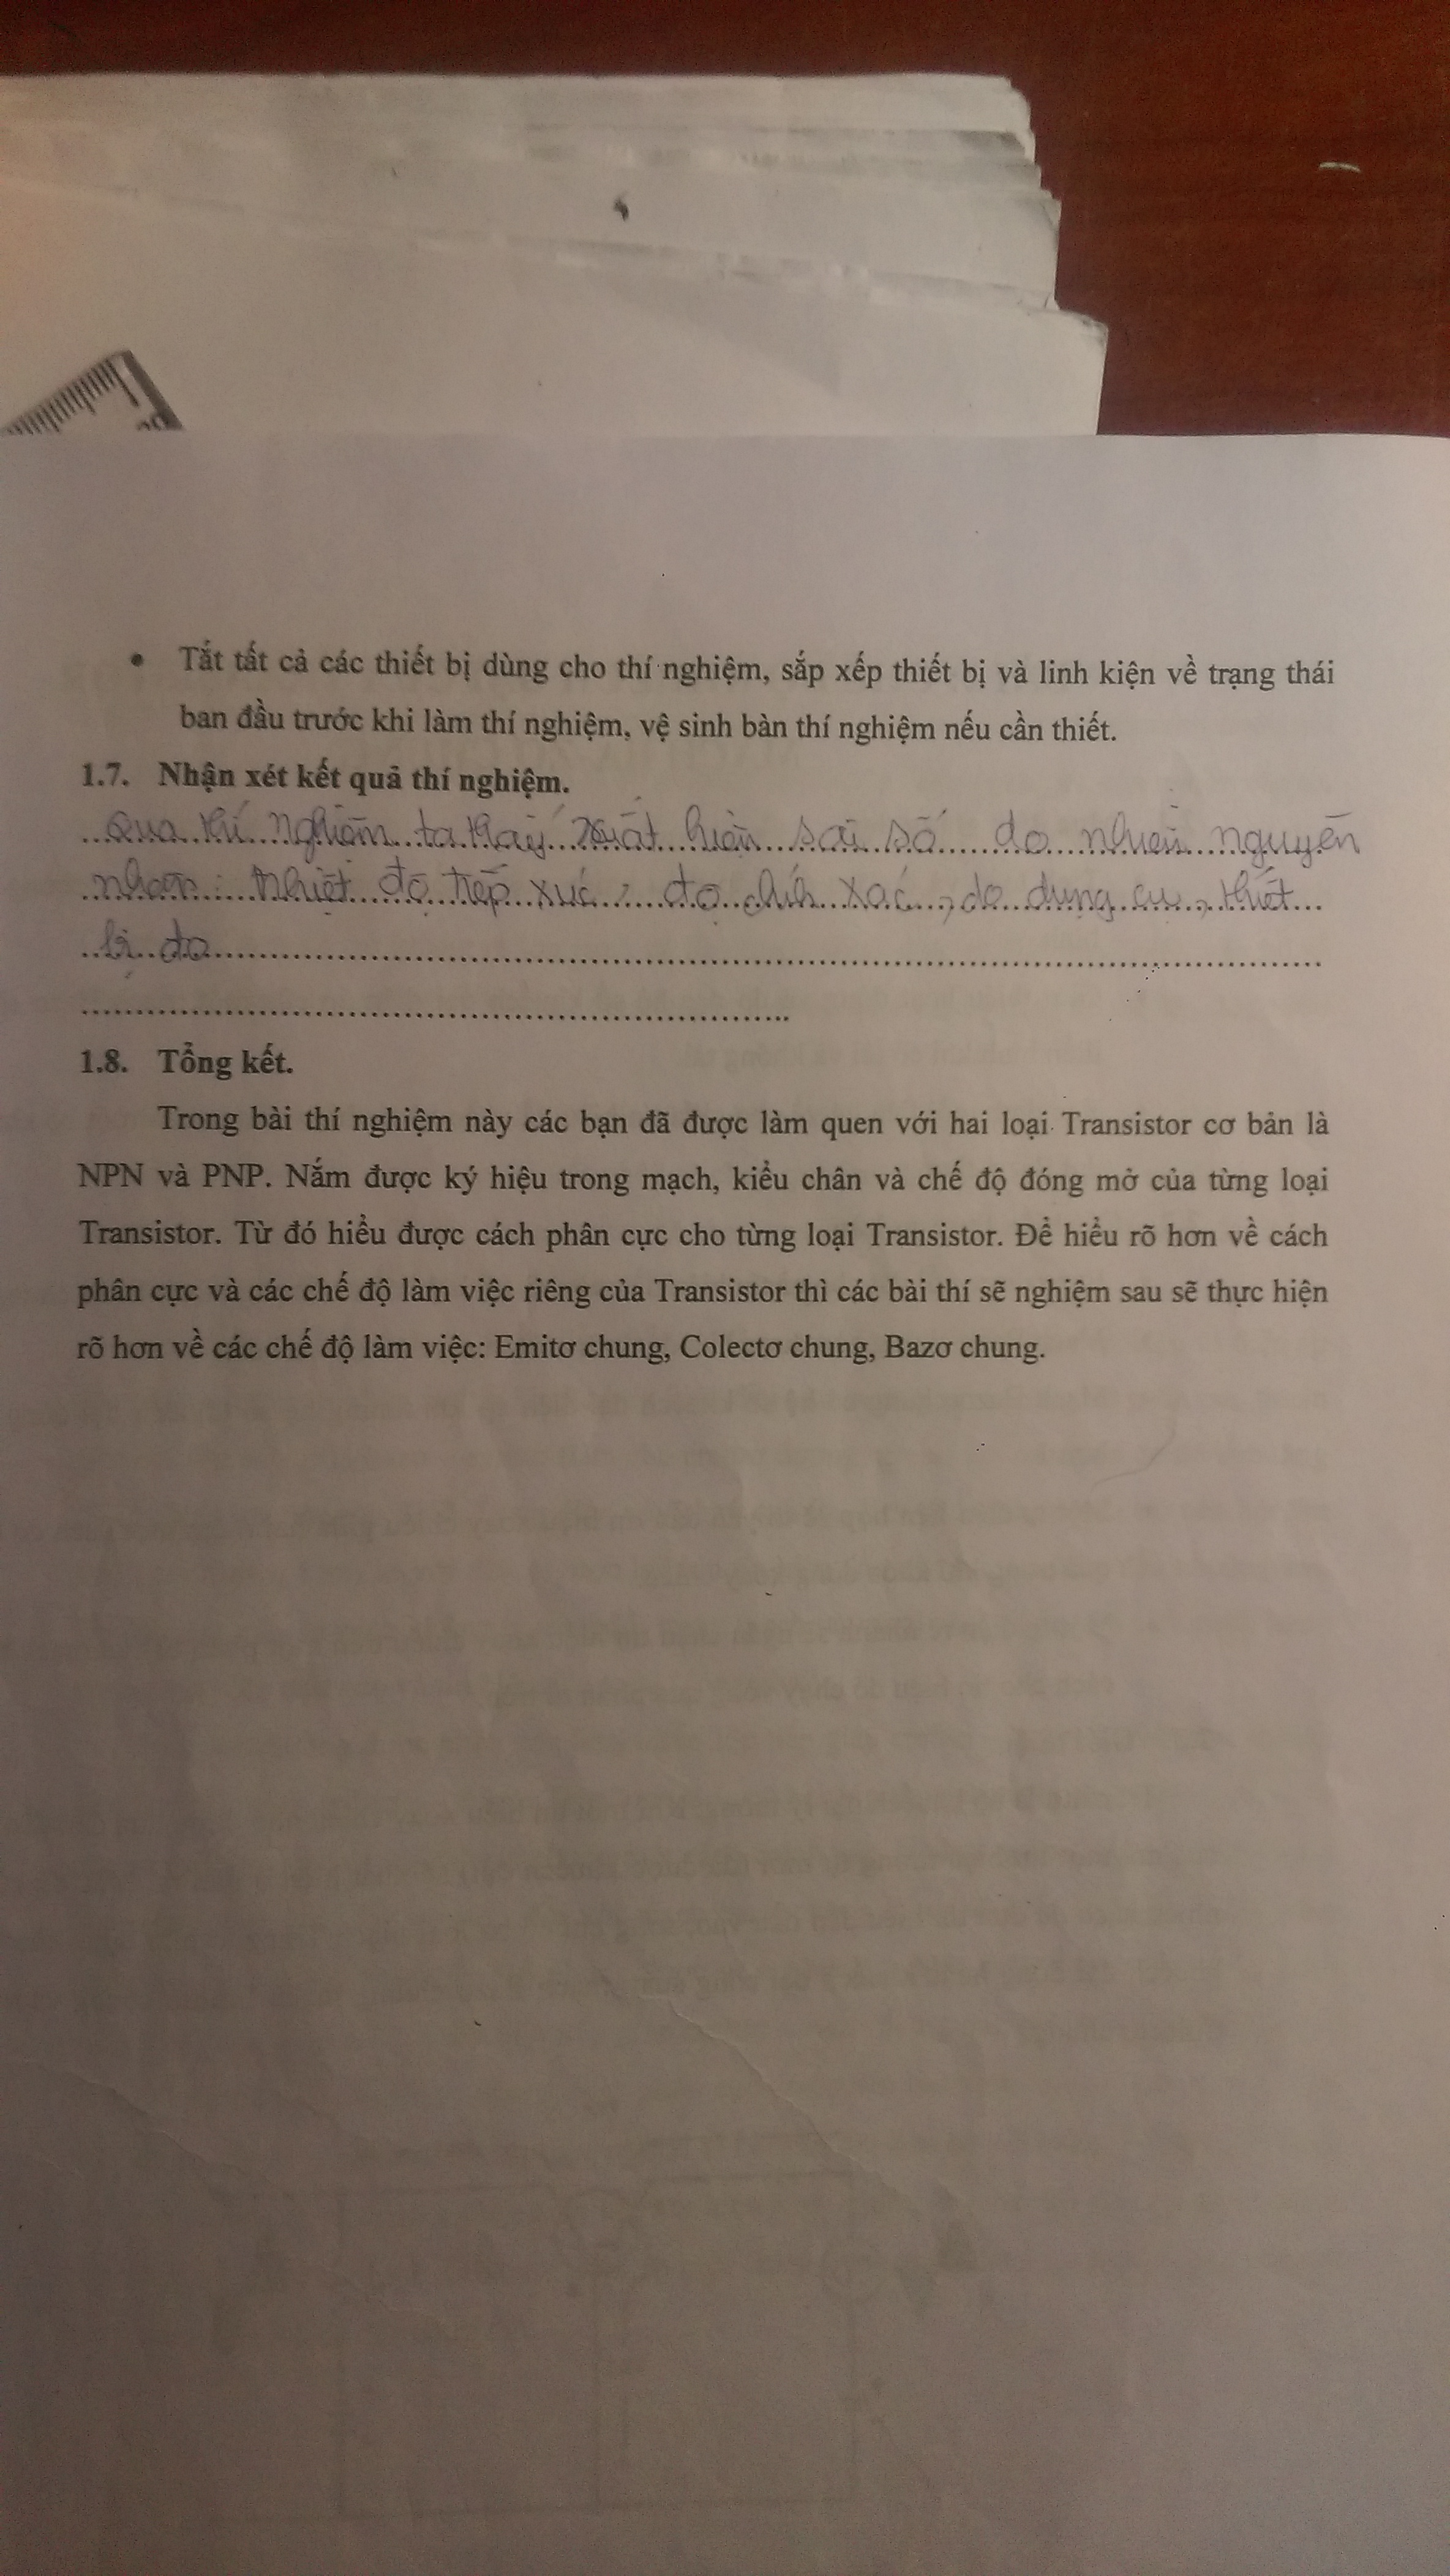 • Tắt tất cả các thiết bị dùng cho thí nghiệm, sắp xếp thiết bị và linh kiện về trạng thái
ban đầu trước khi làm thí nghiệm, vệ sinh bàn thí nghiệm nếu cần thiết.
1.7. Nhận xét kết quả thí nghiệm.
Qua thí nghiệm ta thấy xuất hiện sai số do nhiều nguyên
nhân: nhiệt độ tiếp xúc, độ chính xác, do dụng cụ, thiết
bị đo
1.8. Tổng kết.
Trong bài thí nghiệm này các bạn đã được làm quen với hai loại Transistor cơ bản là
NPN và PNP. Nắm được ký hiệu trong mạch, kiểu chân và chế độ đóng mở của từng loại
Transistor. Từ đó hiểu được cách phân cực cho từng loại Transistor. Để hiểu rõ hơn về cách
phân cực và các chế độ làm việc riêng của Transistor thì các bài thí sẽ nghiệm sau sẽ thực hiện
rõ hơn về các chế độ làm việc: Emitơ chung, Colectơ chung, Bazơ chung.